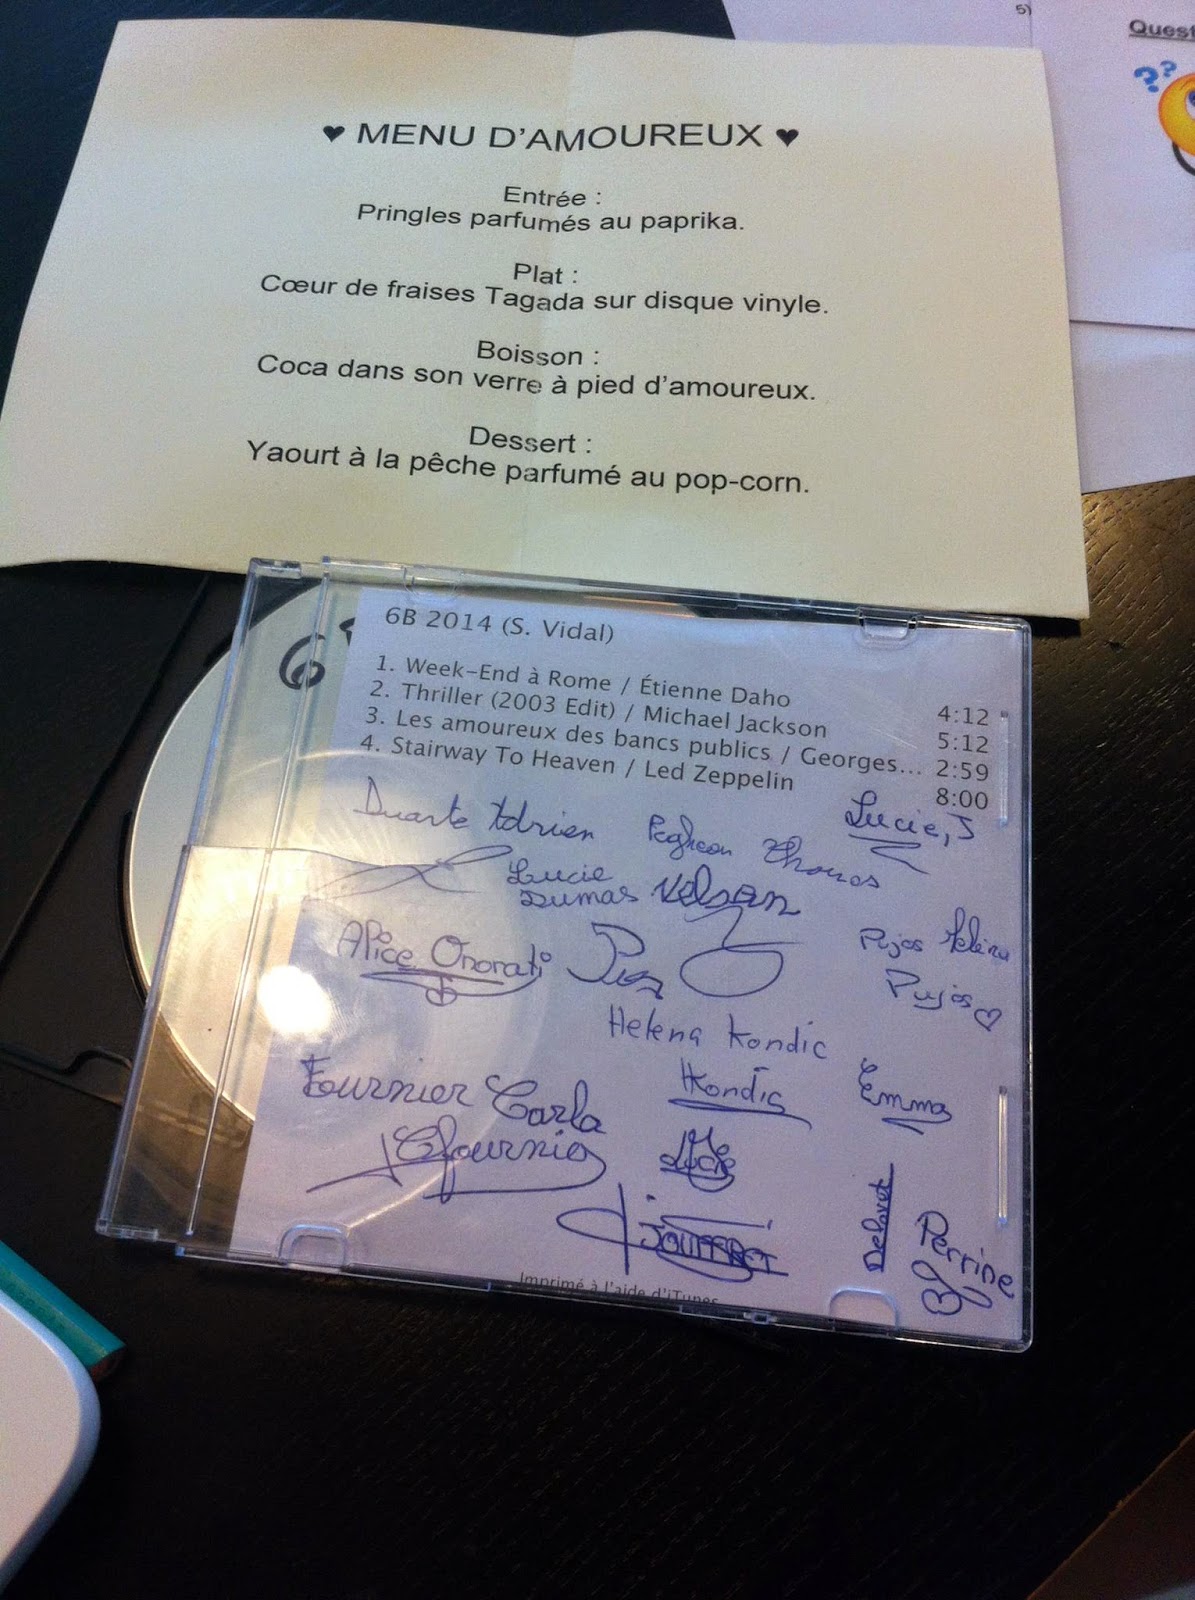 5)
Quest
??
♥ MENU D'AMOUREUX ♥
Entrée :
Pringles parfumés au paprika.
Plat :
Cœur de fraises Tagada sur disque vinyle.
Boisson :
Coca dans son verre à pied d'amoureux.
Dessert :
Yaourt à la pêche parfumé au pop-corn.
6
6B 2014 (S. Vidal)
1. Week-End à Rome / Étienne Daho 4:12
2. Thriller (2003 Edit) / Michael Jackson 5:12
3. Les amoureux des bancs publics / Georges... 2:59
4. Stairway To Heaven / Led Zeppelin 8:00
Duarte Adrien
Thomas
Lucie, J
Lucie
Dumas
Nelson
Alice Onorati
Pujos Héléna
Pujos ♡
Helena Kondic
Kondic
Emma
Fournier Carla
Cfournier
Lucie
JOUFFRET
Delavet
Perrine
Imprimé à l'aide d'iTunes